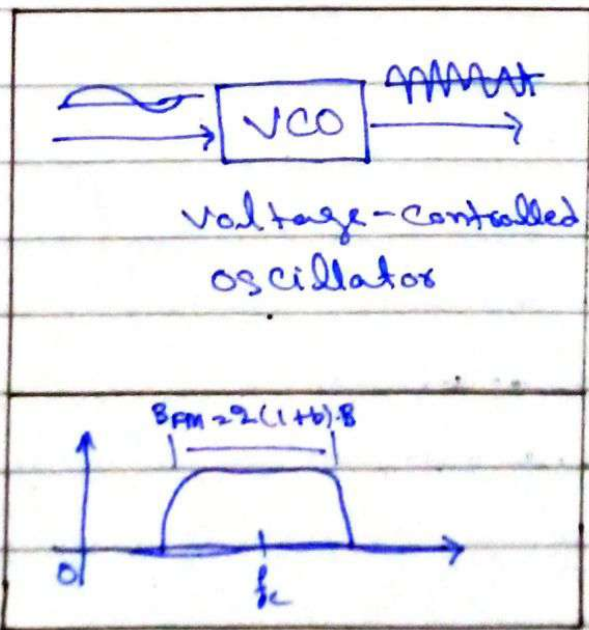 VCO
Voltage-controlled
oscillator
BFM = 2(1+b).B
0
fc